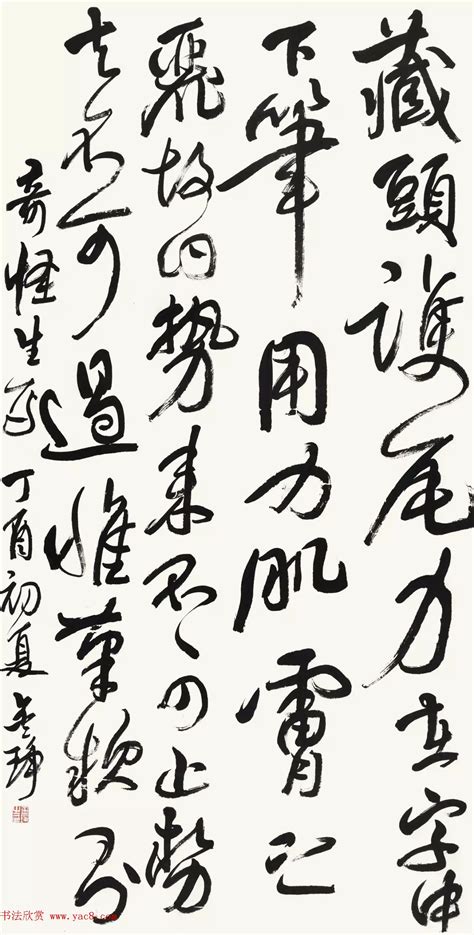 藏頭護尾力在字中
下筆用力肌膚之
麗故曰勢來不可止勢
去不可遏惟筆軟則
奇怪生焉 丁酉初夏
书法欣赏 www.yac8.com